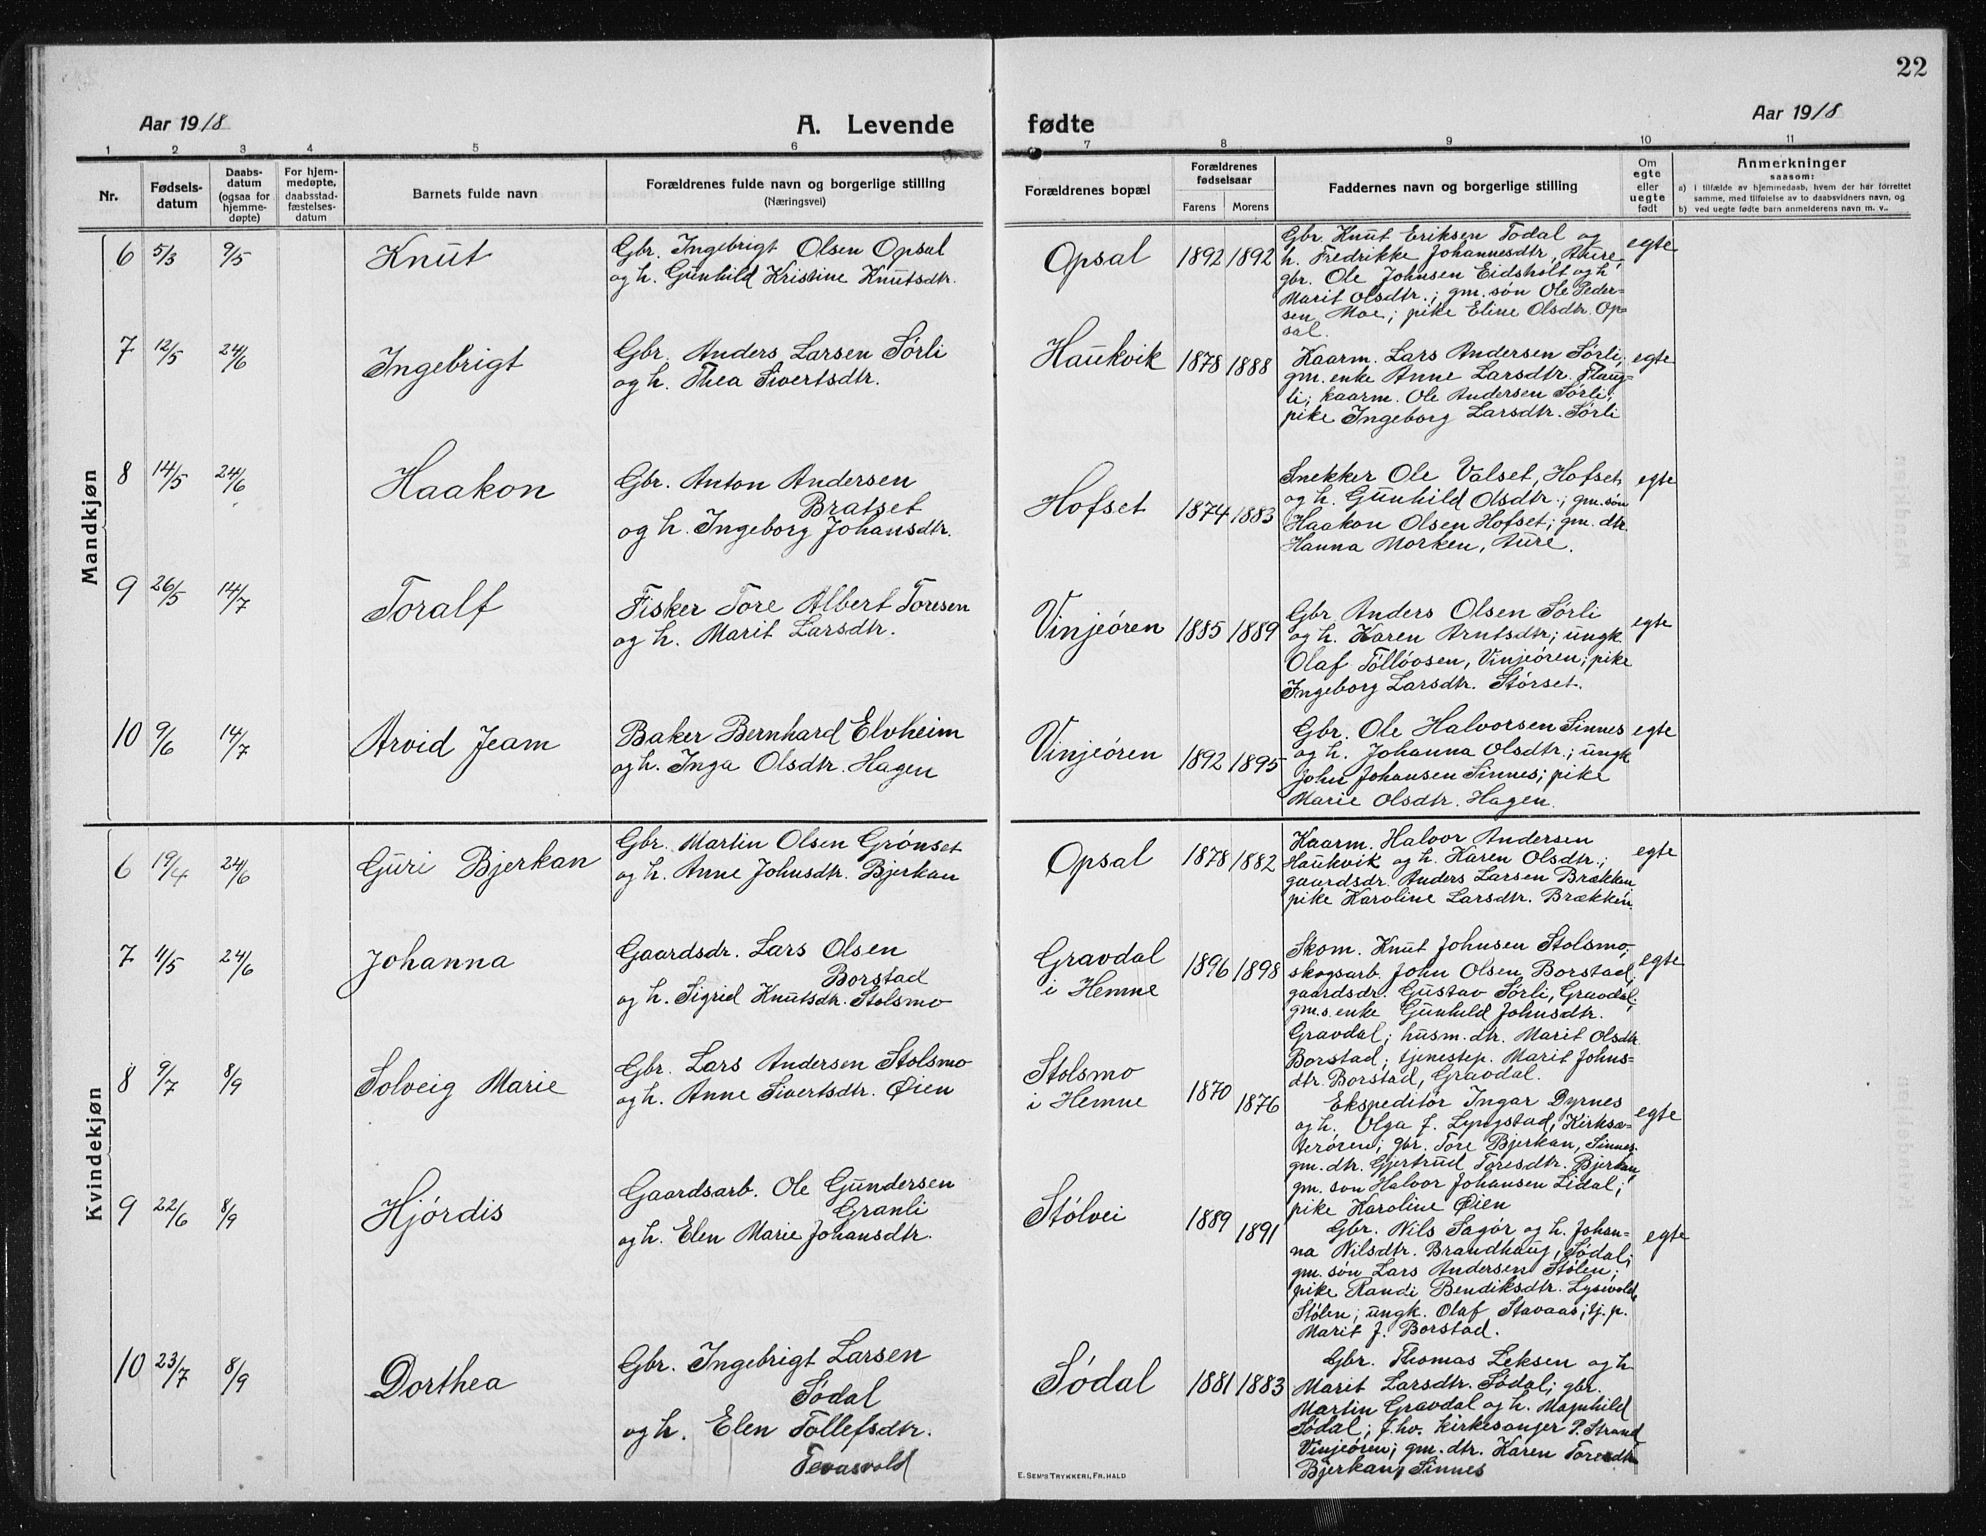 22
Aar 1918
A. Levende
fødte
Aar 1918
1 2 3 4 5 6 7 8 9 10 11
Nr.
Fødsels-
datum
Daabs-
datum
(ogsaa for
hjemme-
døpte)
For hjem-
medøpte,
daabsstad-
fæstelses-
datum
Barnets fulde navn
Forældrenes fulde navn og borgerlige stilling
(Næringsvei)
Forældrenes bopæl
Forældrenes
fødselsaar
Farens Morens
Faddernes navn og borgerlige stilling
Om
egte
eller
uegte
født
Anmerkninger
saasom:
a) i tilfælde av hjemmedaab, hvem der har forrettet
samme, med tilføielse av to daabsvidners navn, og
b) ved uegte fødte barn anmelderens navn m. v..
Mandkjøn
6 5/3 9/5 Knut
Gbr. Ingebrigt Olsen Opsal
og h. Gunhild Kristine Knutsdtr.
Opsal 1892 1892
Gbr. Knut Eriksen Todal og
h. Fredrikke Johannesdtr, Aure,
gbr. Ole Johnsen Eidsholt og h
Marit Olsdtr.; gm. søn Ole Peder=
sen Moe; pike Eline Olsdtr. Op=
sal.
egte
7 12/5 24/6 Ingebrigt
Gbr. Anders Larsen Sørli
og h. Thea Sivertsdtr.
Haukvik 1878 1888
Kaarm. Lars Andersen Sørli,
gm. enke Anne Larsdtr. Flaug=
li; kaarm. Ole Andersen Sørli;
pike Ingeborg Larsdtr. Sørli
egte
8 14/5 24/6 Haakon
Gbr. Anton Andersen
Bratset
og h. Ingeborg Johansdtr.
Hofset 1874 1883
Snekker Ole Valset, Hofset
og h. Gunhild Olsdtr.; gm. søn
Haakon Olsen Hofset; gm. dtr.
Hanna Morken, Aure.
egte
9 26/5 14/7 Toralf
Fisker Tore Albert Toresen
og h. Marit Larsdtr.
Vinjeøren 1885 1889
Gbr Anders Olsen Sørli
og h. Karen Arntsdtr; ungk.
Olaf Tølløosen, Vinjeøren; pike
Ingeborg Larsdtr. Størset.
egte
10 9/6 14/7 Arvid Jeam
Baker Bernhard Elvheim
og h. Inga Olsdtr. Hagen
Vinjeøren 1892 1895
Gbr. Ole Halvorsen Sinnes
og h. Johanna Olsdtr.; ungk
John Johansen Sinnes; pike
Marie Olsdtr. Hagen.
egte
Kvindekjøn
6 19/4 24/6 Guri Bjerkan
Gbr. Martin Olsen Grønset
og h. Anne Johnsdtr. Bjerkan
Opsal 1878 1882
Kaarm. Halvor Andersen
Haukvik og h. Karen Olsdtr.;
gaardsdr. Anders Larsen Brækken
pike Karoline Larsdtr. Brækken.
egte
7 4/5 24/6 Johanna
Gaardsdr. Lars Olsen
Borstad
og h. Sigrid Knutsdtr. Stolsmo
Gravdal
i Hemne
1896 1898
Skom. Knut Johnsen Stolsmo,
skogsarb. John Olsen Borstad,
gaardsdr. Gustav Sørli, Gravdal;
gm.s. enke Gunhild Johnsdtr.
Gravdal; husm. dtr. Marit Olsdtr
Borstad; tjenestep. Marit Johns=
dtr. Borstad, Gravdal.
egte
8 9/7 8/9 Solveig Marie
Gbr. Lars Andersen Stolsmo
og h. Anne Sivertsdtr. Øien
Stolsmo
i Hemne
1870 1876
Ekspeditør Ingar Dyrnes
og h. Olga J. Lyngstad, Kirksæ=
terøren; gbr. Tore Bjerkan, Sinnes
gm. dtr. Gjertrud Toresdtr. Bjerkan,
gm. søn Halvor Johansen Lidal;
pike Karoline Øien
egte
9 22/6 8/9 Hjördis
Gaardsarb. Ole Gundersen
Granli
og h. Elen Marie Johansdtr.
Stølvei 1889 1891
Gbr. Nils Sagør og h. Johan=
na Nilsdtr. Brandhaug, Södal;
gm. søn Lars Andersen Stølen;
pike Randi Bendiksdtr. Lysvold
Stølen; ungk. Olaf Stavaas; tj. p.
Marit J. Borstad.
egte
10 23/7 8/9 Dorthea
Gbr. Ingebrigt Larsen
Södal
og h. Elen Tollefsdtr.
Tevasvold
Södal 1881 1883
Gbr. Thomas Leksen og h
Marit Larsdtr. Södal; gbr.
Martin Gravdal og h. Magnhild
Södal; f.hv. kirkesanger P. Strand
Vinjeören; gm. dtr. Karen Toresdtr
Bjerkan, Sinnes
E. SEM'S TRYKKERI, FR.HALD